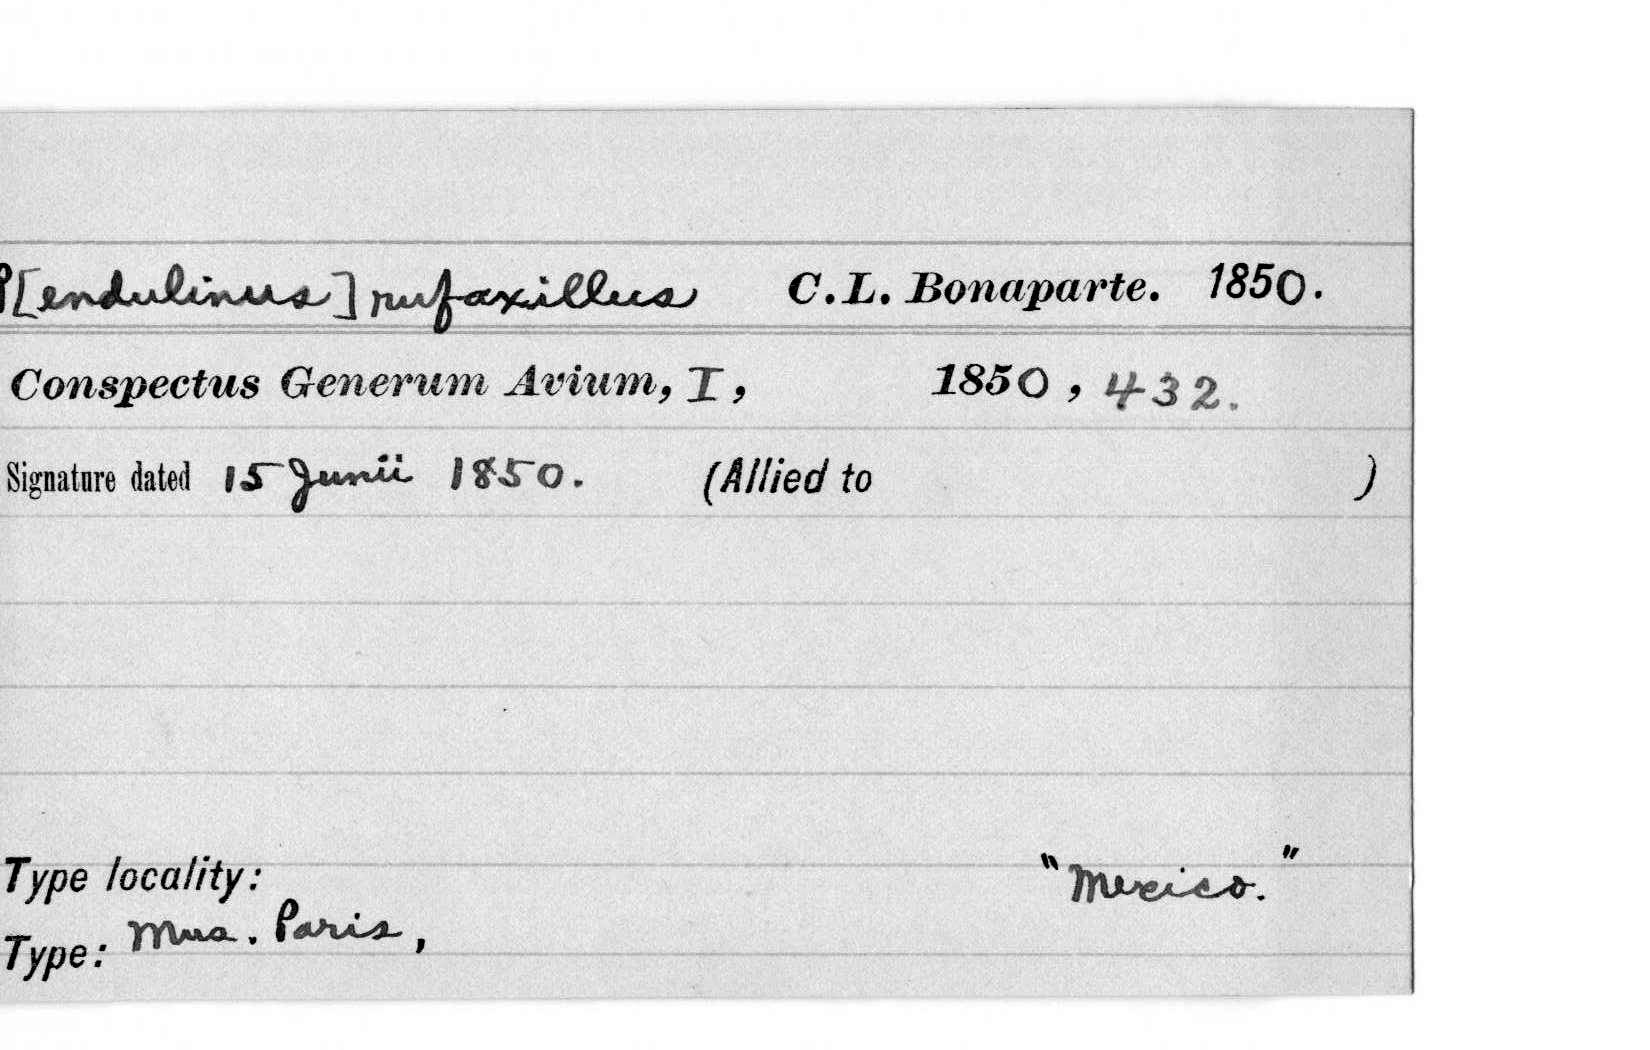 P[endulinus] rufaxillus C.L. Bonaparte. 1850.
Conspectus Generum Avium, I, 1850, 432.
Signature dated 15 Junii 1850. (Allied to )
Type locality: "Mexico."
Type: Mus. Paris,